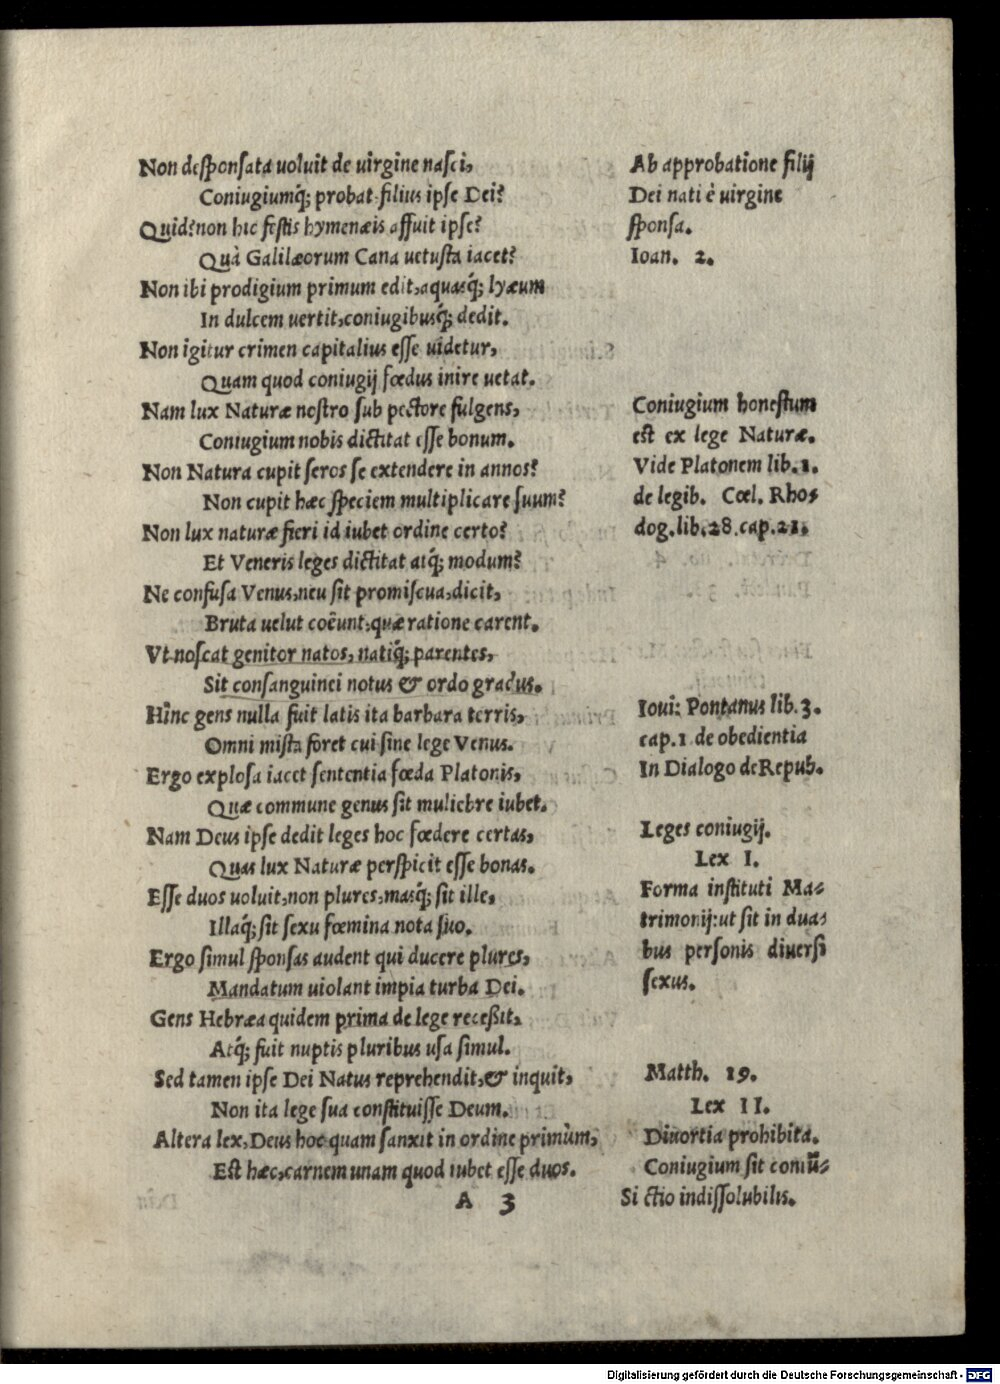 Non desponsata uoluit de uirgine nasci,
Coniugiumq́; probat filius ipse Dei?
Quid? non hic festis hymenæis affuit ipse?
Quà Galilæorum Cana uetusta iacet?
Non ibi prodigium primum edit, aquasq́; lyæum
In dulcem uertit, coniugibusq́; dedit.
Non igitur crimen capitalius esse uidetur,
Quam quod coniugij fœdus inire uetat.
Nam lux Naturæ nostro sub pectore fulgens,
Coniugium nobis dictitat esse bonum.
Non Natura cupit seros se extendere in annos?
Non cupit hæc speciem multiplicare suum?
Non lux naturæ fieri id iubet ordine certo?
Et Veneris leges dictitat atq́; modum?
Ne confusa Venus, neu sit promiscua, dicit,
Bruta uelut coëunt, quæ ratione carent.
Vt noscat genitor natos, natiq́; parentes,
Sit consanguinei notus & ordo gradus.
Hinc gens nulla fuit latis ita barbara terris,
Omni mista foret cui sine lege Venus.
Ergo explosa iacet sententia fœda Platonis,
Quæ commune genus sit muliebre iubet.
Nam Deus ipse dedit leges hoc fœdere certas,
Quas lux Naturæ perspicit esse bonas.
Esse duos uoluit, non plures, masq́; sit ille,
Illaq́; sit sexu fœmina nota suo.
Ergo simul sponsas audent qui ducere plures,
Mandatum uiolant impia turba Dei.
Gens Hebræa quidem prima de lege receßit,
Atq́; fuit nuptis pluribus usa simul.
Sed tamen ipse Dei Natus reprehendit, & inquit,
Non ita lege sua constituisse Deum.
Altera lex, Deus hoc quam sanxit in ordine primùm,
Est hæc, carnem unam quod iubet esse duos.
A 3
Si
Ab approbatione filij
Dei nati è uirgine
sponsa.
Ioan. 2.
Coniugium honestum
est ex lege Naturæ.
Vide Platonem lib. 1.
de legib. Cœl. Rhos
dog. lib. 28. cap. 21.
Ioui: Pontanus lib. 3.
cap. 1 de obedientia
In Dialogo de Repub.
Leges coniugij.
Lex I.
Forma instituti Ma-
trimonij: ut sit in duas
bus personis diuersi
sexus.
Matth. 19.
Lex II.
Diuortia prohibita.
Coniugium sit coniū-
ctio indissolubilis.
Digitalisierung gefördert durch die Deutsche Forschungsgemeinschaft - DFG